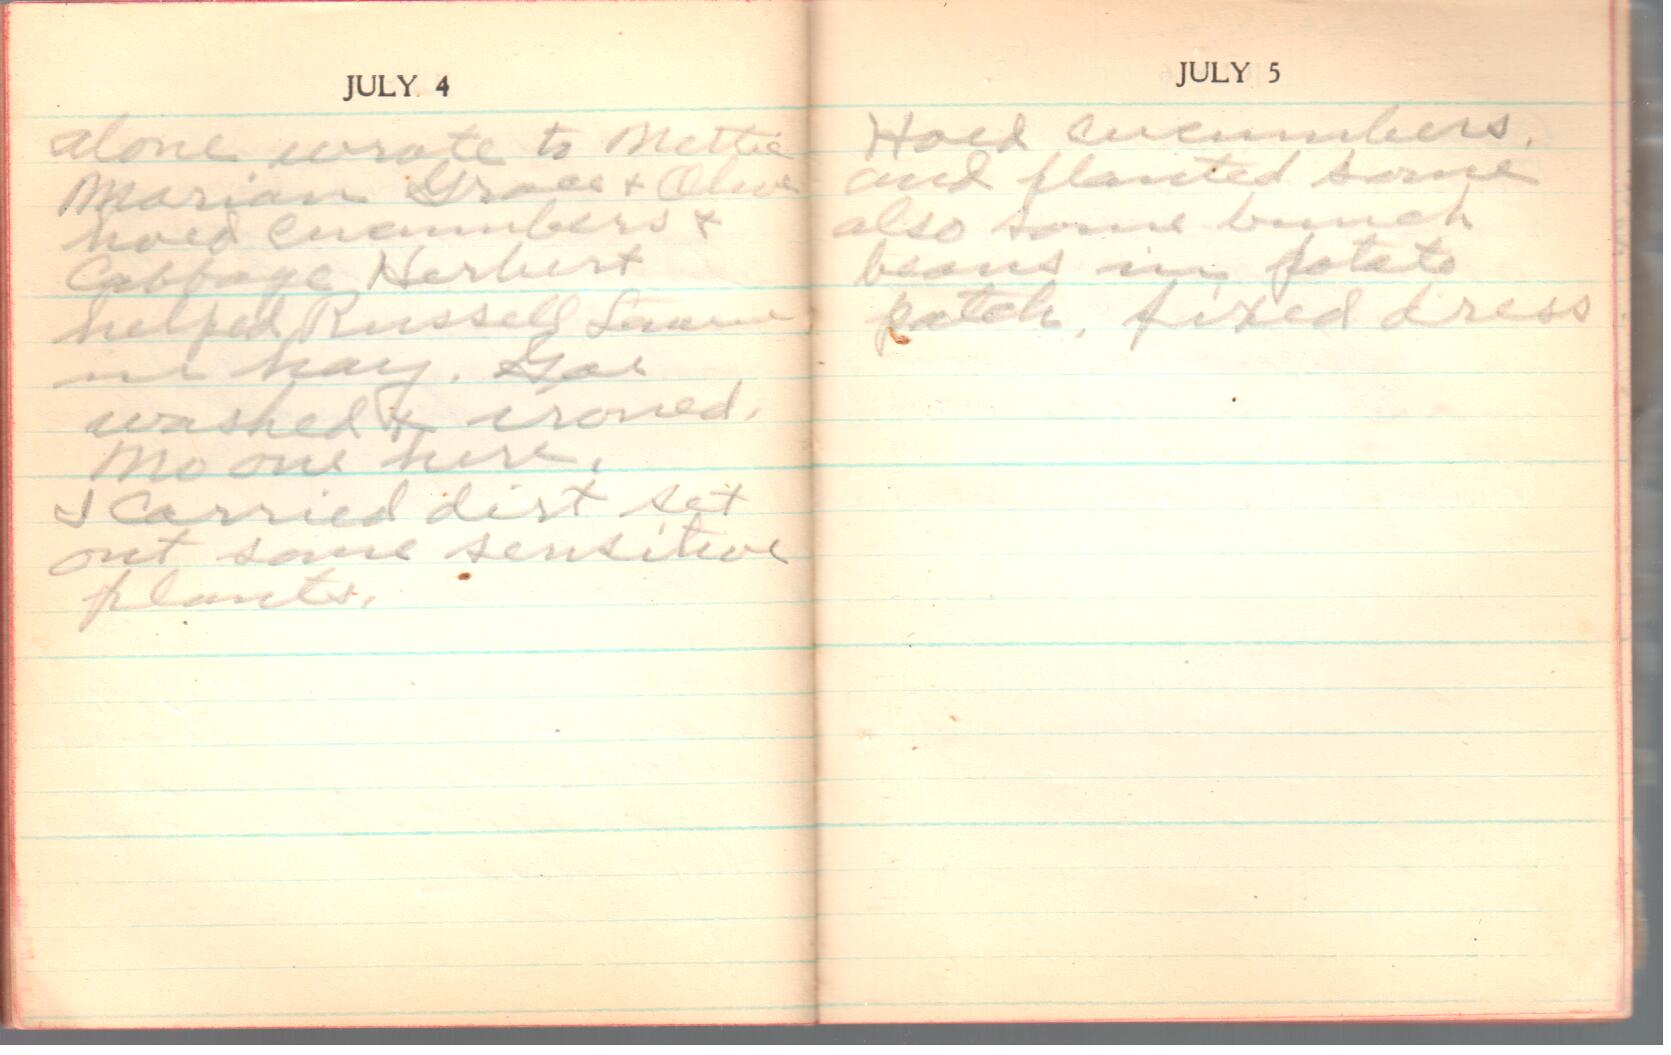 JULY 4
alone wrote to Mettie
Marian Grace + Olive
hoed cucumbers +
Cabbage Herbert
helped Russell
in hay.
washed + ironed.
No one here.
I carried dirt set
out some sensitive
plants.
JULY 5
Hoed cucumbers.
and planted some
also some bunch
beans in potato
patch, fixed dress